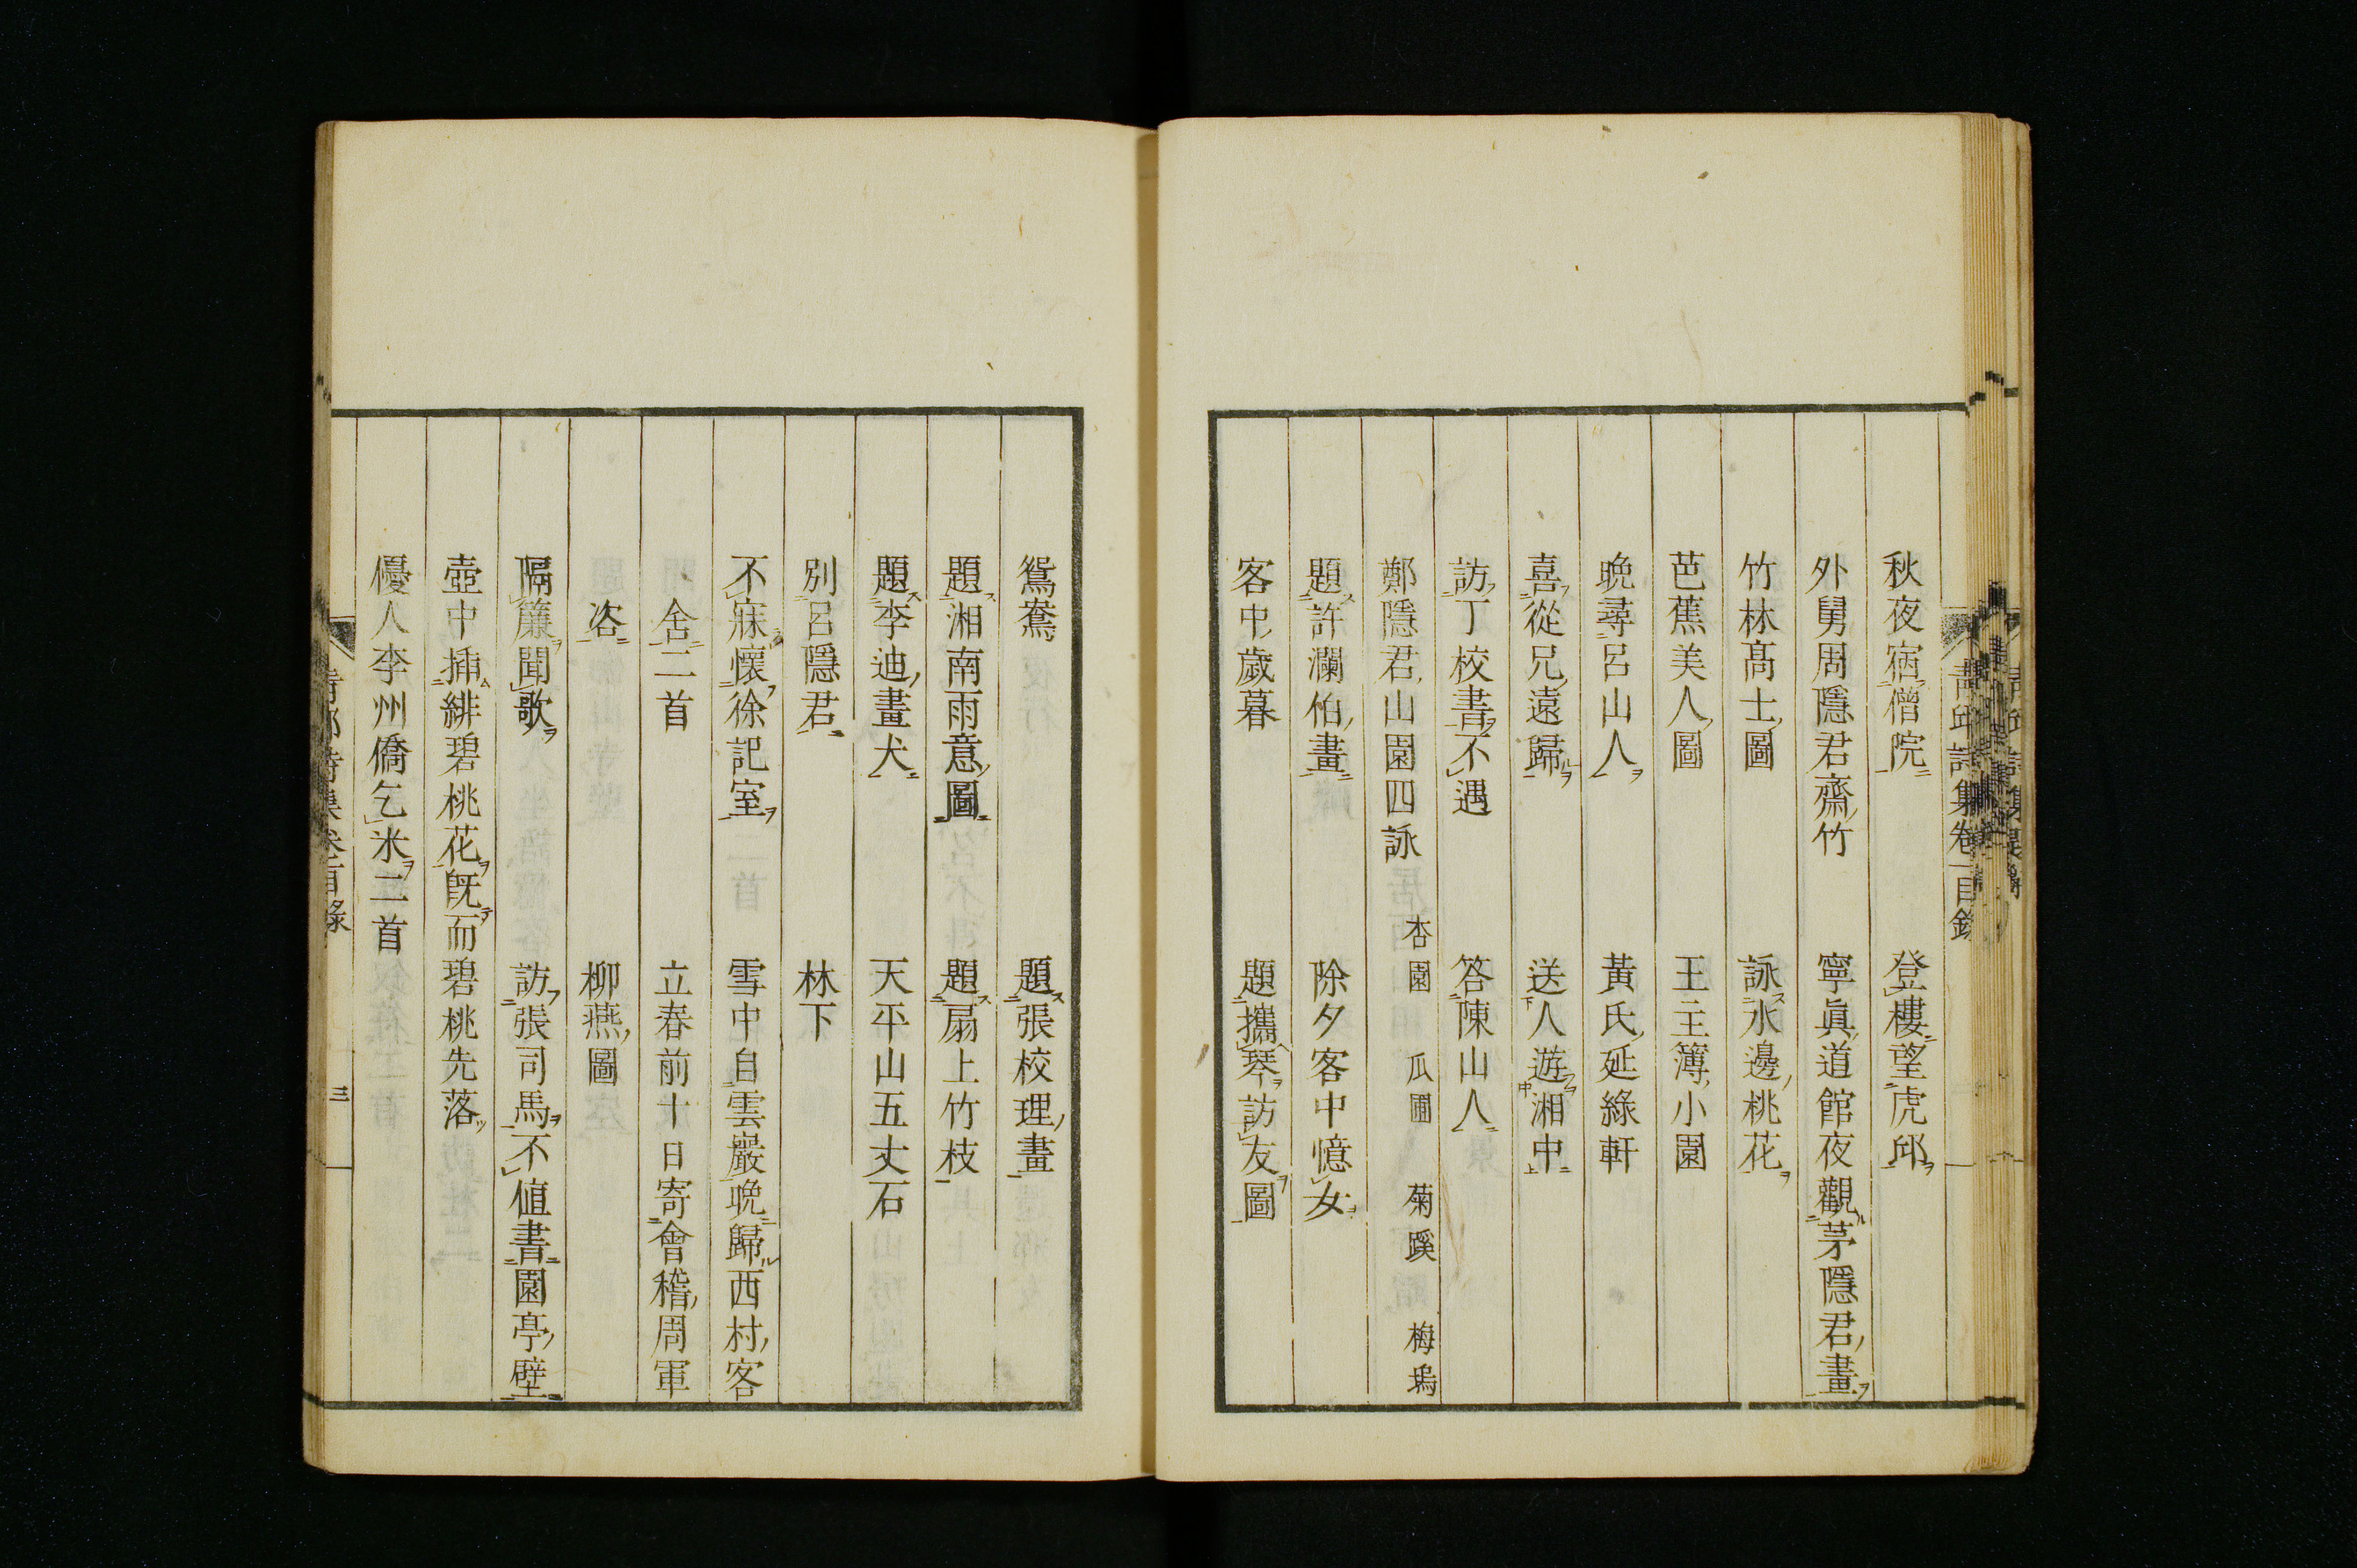 秋夜宿僧院　登樓望虎邱
外舅周隱君齋竹　寧眞道館夜觀茅隱君畫
竹林髙士圖　詠水邊桃花
芭蕉美人圖　王主簿小園
晩尋呂山人　黃氏延綠軒
喜從兄遠歸　送人遊湘中
訪丁校書不遇　答陳山人
鄭隱君山園四詠　杏園　瓜圃　菊蹊　梅塢
題許瀾伯畫　除夕客中憶女
客中歲暮　題攜琴訪友圖
鴛鴦　題張校理畫
題湘南雨意圖　題扇上竹枝
題李迪畫犬　天平山五丈石
別呂隱君　林下
不寐懷徐記室　雪中自雲巖晩歸西村客
舍二首　立春前十日寄會稽周軍
咨　柳燕圖
隔簾聞歌　訪張司馬不値書園亭壁
壺中插緋碧桃花旣而碧桃先落
優人李州僑乞米二首